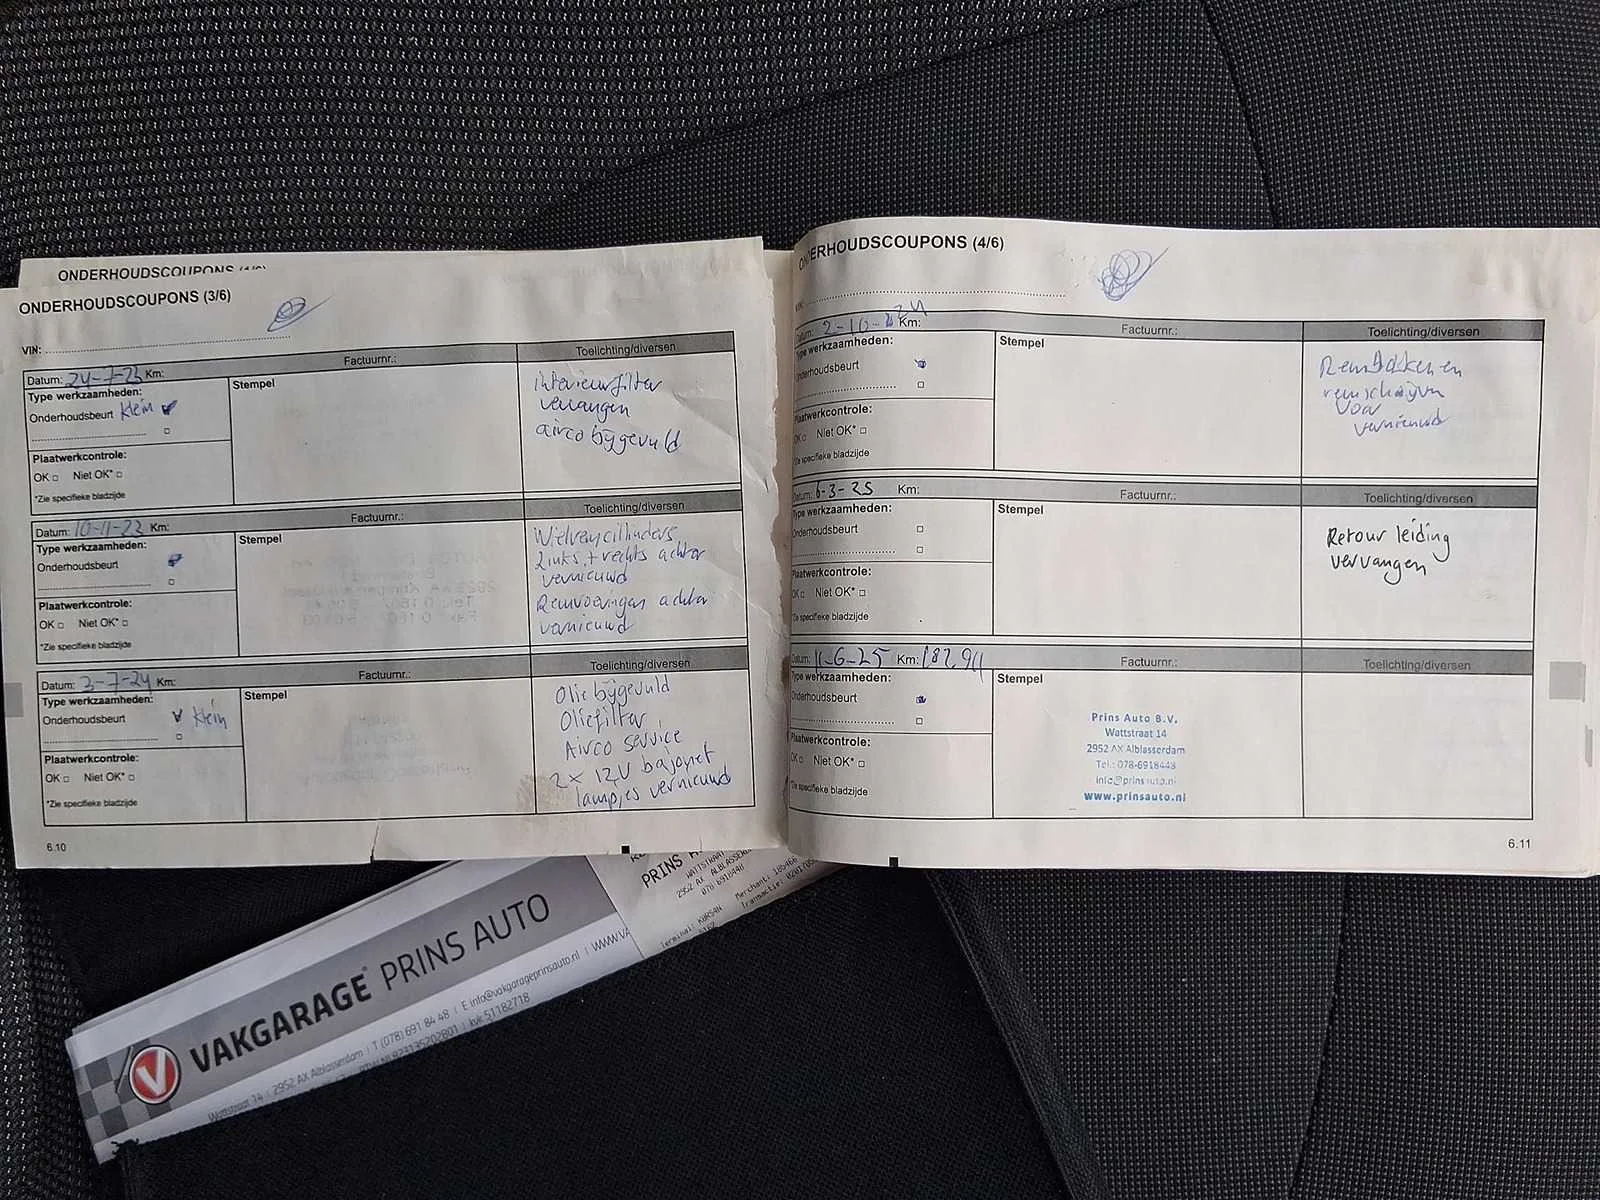 ONDERHOUDSCOUPONS (3/6)
VIN:
Datum: 24-7-23 Km:
Factuurnr.:
Toelichting/diversen
Type werkzaamheden:
Onderhoudsbeurt klein
Plaatwerkcontrole:
OK Niet OK*
*Zie specifieke bladzijde
Stempel
interieurfilter
vervangen
airco bijgevuld
Datum: 10-11-23 Km:
Factuurnr.:
Toelichting/diversen
Type werkzaamheden:
Onderhoudsbeurt
Plaatwerkcontrole:
OK Niet OK*
*Zie specifieke bladzijde
Stempel
Wielremcillinders
Links + rechts achter
vernieuwd
Remvoeringen achter
vernieuwd
Datum: 3-7-24 Km:
Factuurnr.:
Toelichting/diversen
Type werkzaamheden:
Onderhoudsbeurt klein
Plaatwerkcontrole:
OK Niet OK*
*Zie specifieke bladzijde
Stempel
Olie bijgevuld
Oliefilter
Airco service
2x 12V bajonet
lampjes vernieuwd
6.10
ONDERHOUDSCOUPONS (4/6)
VIN:
Datum: 2-10-24 Km:
Factuurnr.:
Toelichting/diversen
Type werkzaamheden:
Onderhoudsbeurt
Plaatwerkcontrole:
OK Niet OK*
*Zie specifieke bladzijde
Stempel
Remblokken en
remschijven
voor
vernieuwd
Datum: 6-3-25 Km:
Factuurnr.:
Toelichting/diversen
Type werkzaamheden:
Onderhoudsbeurt
Plaatwerkcontrole:
OK Niet OK*
*Zie specifieke bladzijde
Stempel
Retour leiding
vervangen
Datum: 11-6-25 Km:
Factuurnr.:
Toelichting/diversen
Type werkzaamheden:
Onderhoudsbeurt
Plaatwerkcontrole:
OK Niet OK*
*Zie specifieke bladzijde
Stempel
Prins Auto B.V.
Wattstraat 14
2952 AX Alblasserdam
Tel.: 078-6918448
info@prinsauto.nl
www.prinsauto.nl
6.11
VAKGARAGE PRINS AUTO
Wattstraat 14 | 2952 AX Alblasserdam | T (078) 691 84 48 | E info@vakgarageprinsauto.nl
kvk 51182718
2952 AX ALBLASSERD
078 6918448